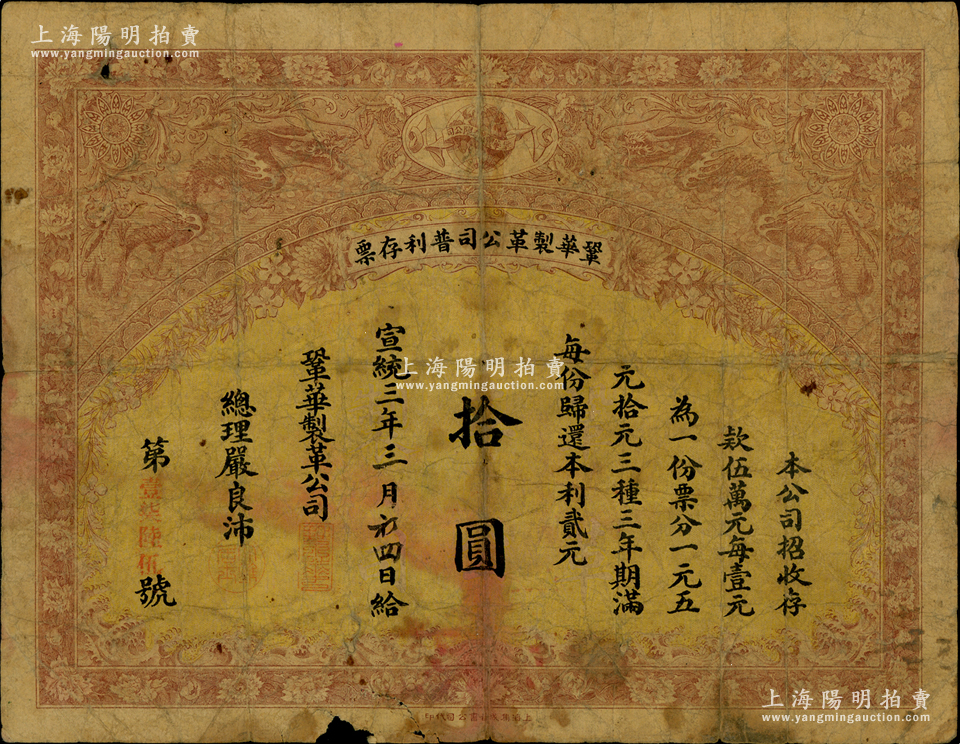 上海陽明拍賣
www.yangmingauction.com
鞏華製革公司普利存票
本公司招收存
款伍萬元每壹元
為一份票分一元五
元拾元三種三年期滿
每份歸還本利貳元
拾圓
宣統三年三月初四日給
鞏華製革公司
總理嚴良沛
第壹 陸佰號
上海陽明拍賣
www.yangmingauction.com
上海陽明拍賣
www.yangmingauction.com